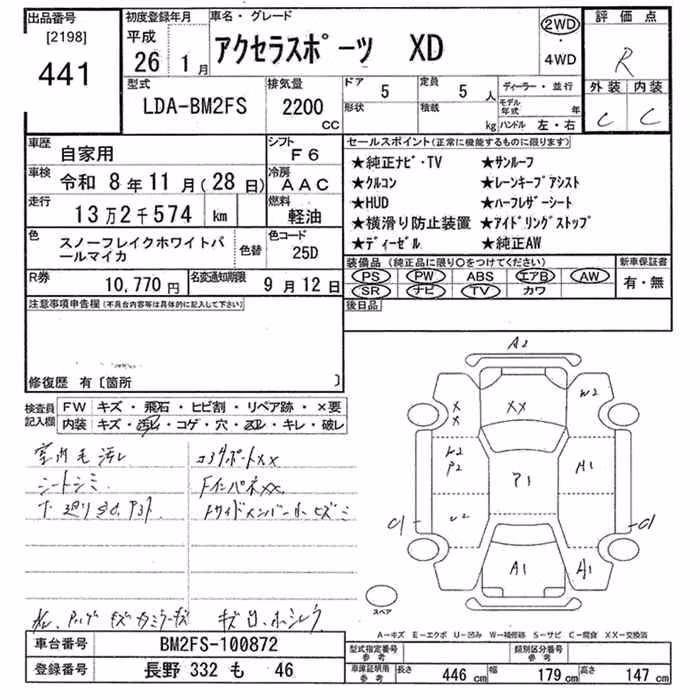 出品番号
[2198]
441
初度登録年月
平成
26 1月
車名・グレード
アクセラスポーツ XD
2WD
・
4WD
評価点
R
外装 内装
C C
型式
LDA-BM2FS
排気量
2200
CC
ドア
5
形状
定員
5人
積載
kg
ディーラー・並行
モデル年式 年
ハンドル 左・右
車歴
自家用
シフト
F6
車検
令和 8年 11月 (28日)
冷房
AAC
走行
13万2千574 km
燃料
軽油
色
スノーフレイクホワイトパールマイカ
色替
色コード
25D
R券
10,770円
名変通知期限
9月12日
セールスポイント(正常に機能するものに限ります)
★純正ナビ・TV ★サンルーフ
★クルコン ★レーンキープアシスト
★HUD ★ハーフレザーシート
★横滑り防止装置 ★アイドリングストップ
★ディーゼル ★純正AW
装備品(純正品に限り○をつけてください)
PS PW ABS エアB AW
SR ナビ TV カワ
新車保証書
有・無
後日品
注意事項申告欄(不具合内容等は具体的に記入して下さい)
修復歴 有〔箇所 〕
検査員記入欄
FW キズ・飛石・ヒビ割・リペア跡・×要
内装 キズ・汚レ・コゲ・穴・スレ・キレ・破レ
室内毛汚レ
コアサポートXX
シートシミ
FインパネXX
A2
XX
X
X
W2
W2
P2
P1
A1
W2
A1
A1
スペア
A―キズ E―エクボ U―凹み W―補修跡 S―サビ C―腐食 XX―交換済
車台番号
BM2FS-100872
登録番号
長野 332 も 46
型式指定番号
参考
類別区分番号
参考
車庫証明用
参考
長さ 446 cm 幅 179 cm 高さ 147 cm